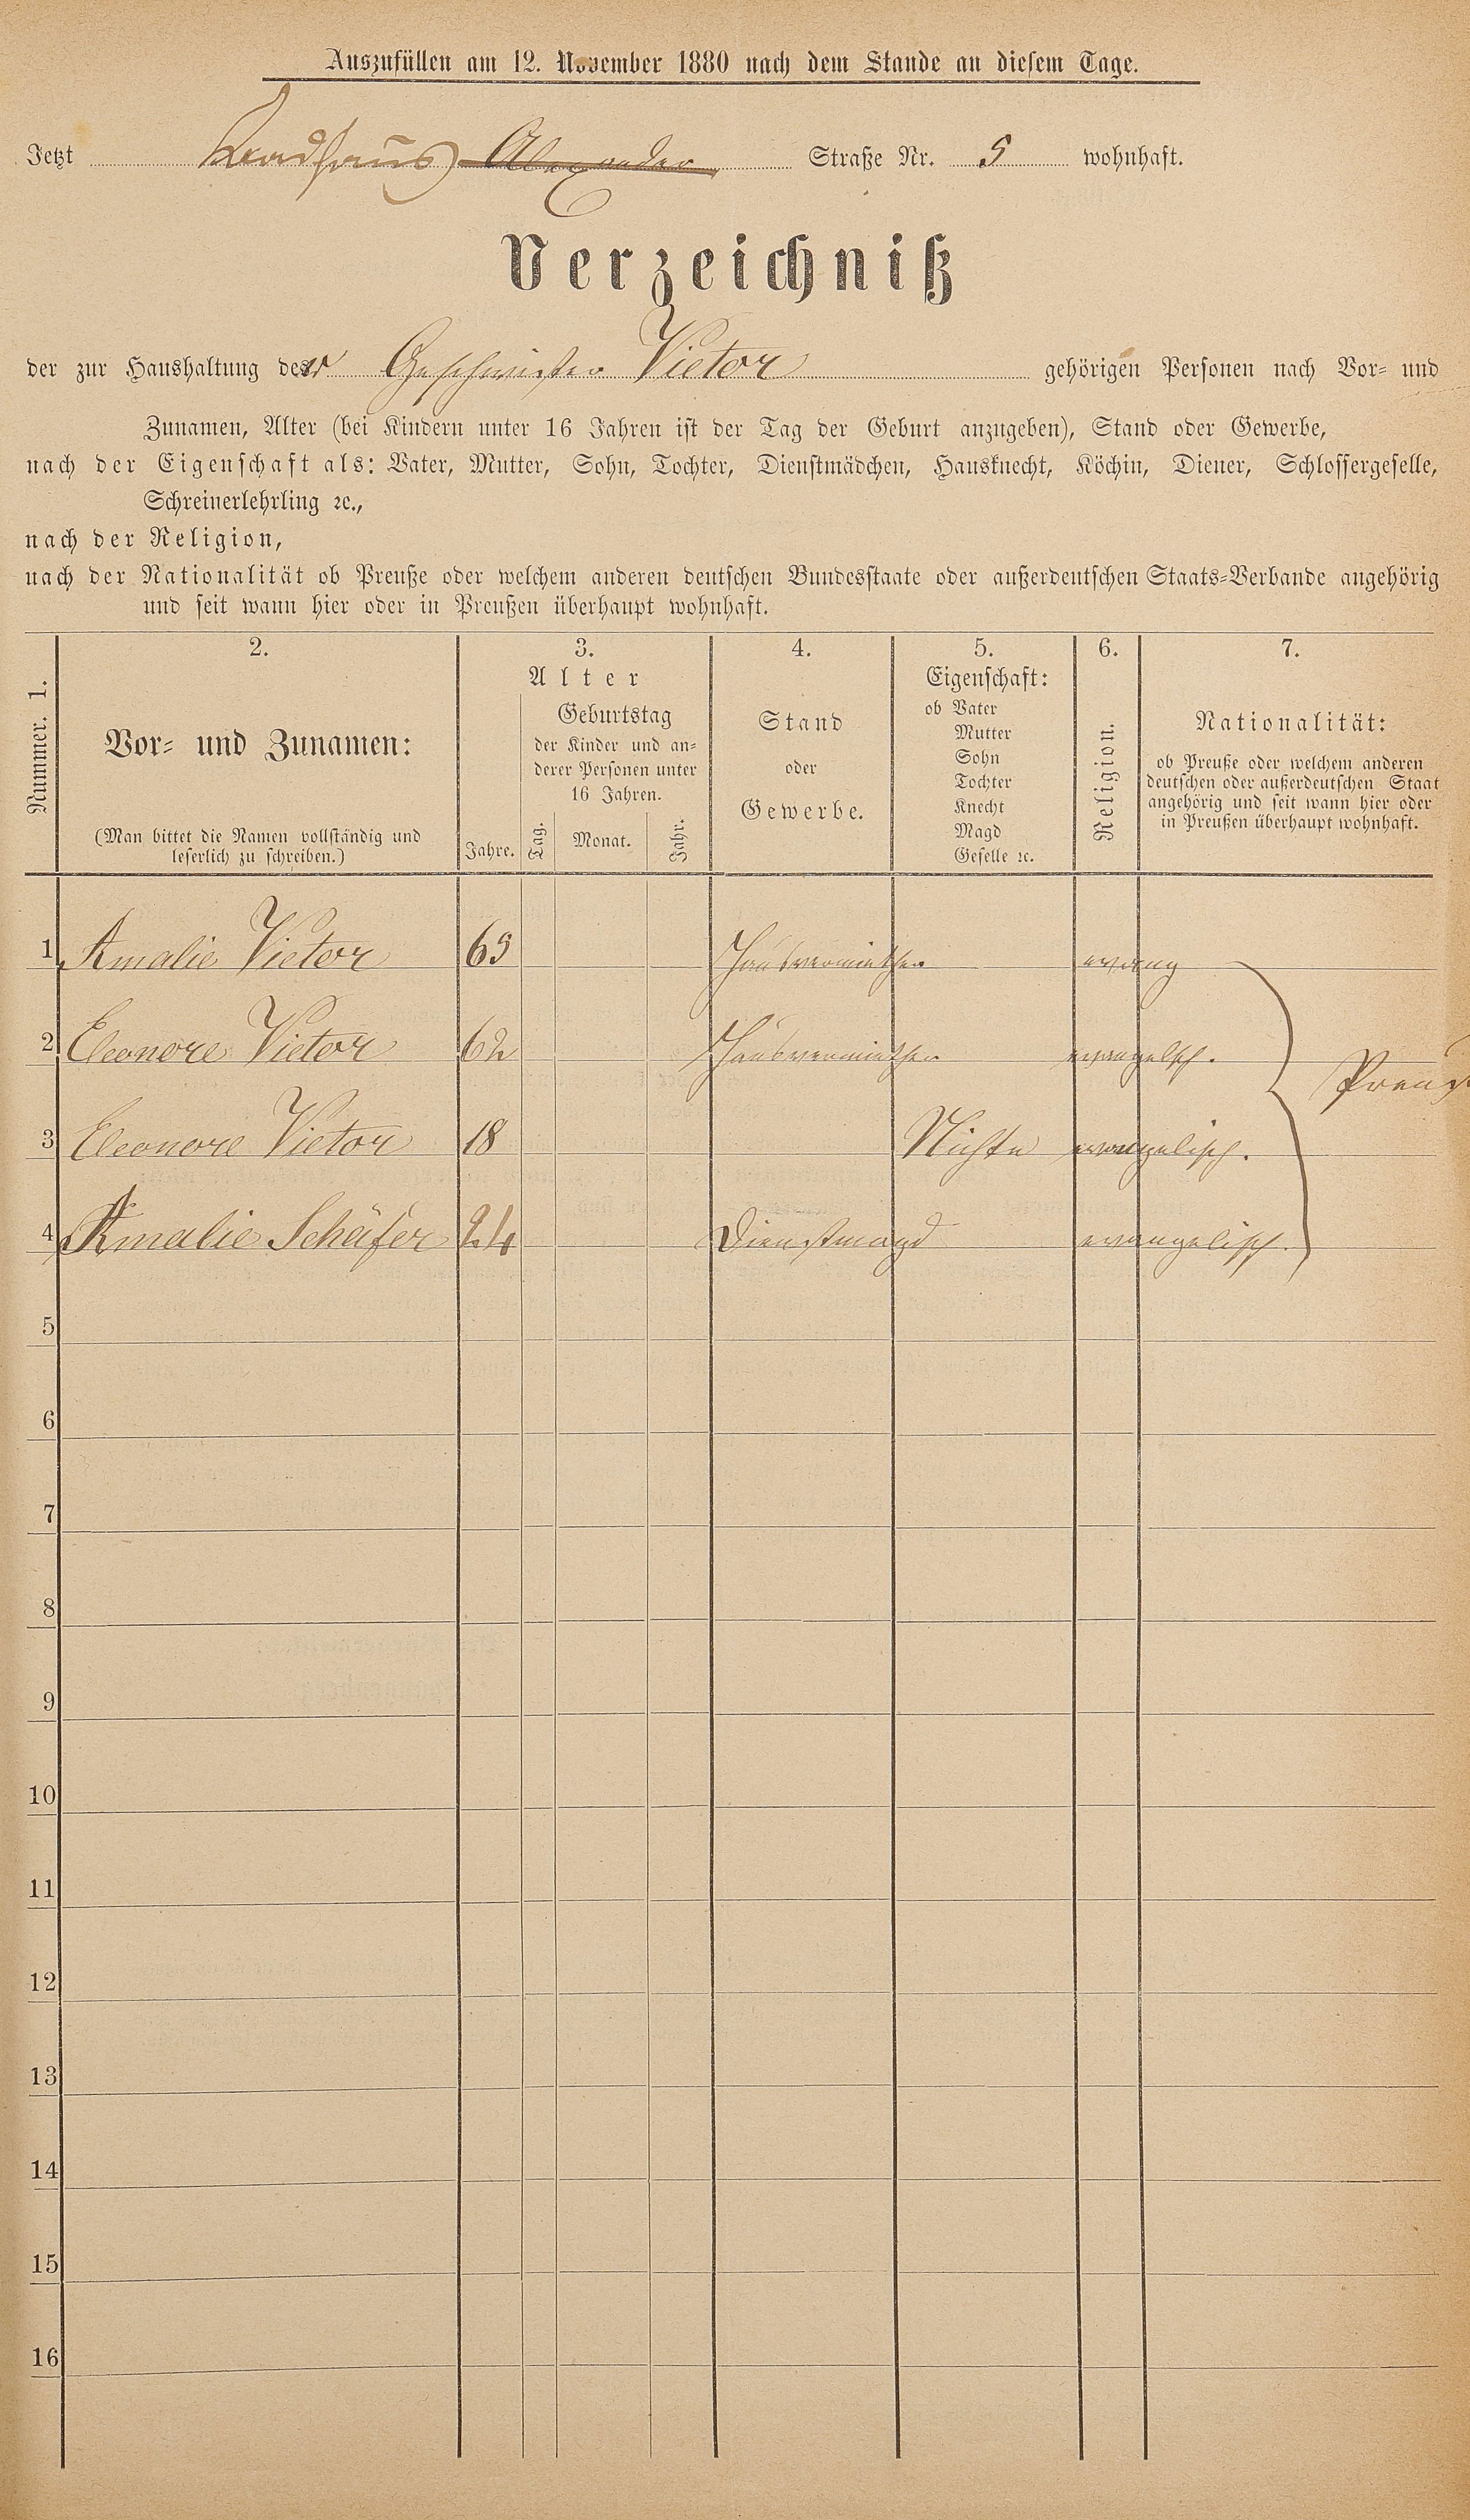 Auszufüllen am 12. November 1880 nach dem Stande an diesem Tage.
Jetzt Landhaus Alexander Straße Nr. 5 wohnhaft.
Verzeichniß
der zur Haushaltung der Geschwister Vietor gehörigen Personen nach Vor- und
Zunamen, Alter (bei Kindern unter 16 Jahren ist der Tag der Geburt anzugeben), Stand oder Gewerbe,
nach der Eigenschaft als: Vater, Mutter, Sohn, Tochter, Dienstmädchen, Hausknecht, Köchin, Diener, Schlossergeselle,
Schreinerlehrling ꝛc.,
nach der Religion,
nach der Nationalität ob Preuße oder welchem anderen deutschen Bundesstaate oder außerdeutschen Staats-Verbande angehörig
und seit wann hier oder in Preußen überhaupt wohnhaft.
Nummer. 1.
2.
Vor- und Zunamen:
(Man bittet die Namen vollständig und
leserlich zu schreiben.)
3.
Alter
Jahre.
Geburtstag
der Kinder und an-
derer Personen unter
16 Jahren.
Tag.
Monat.
Jahr.
4.
Stand
oder
Gewerbe.
5.
Eigenschaft:
ob Vater
Mutter
Sohn
Tochter
Knecht
Magd
Geselle ꝛc.
6.
Religion.
7.
Nationalität:
ob Preuße oder welchem anderen
deutschen oder außerdeutschen Staat
angehörig und seit wann hier oder
in Preußen überhaupt wohnhaft.
1 Amalie Vietor 65 Hausvermiether evang
2 Eleonore Vietor 62 Hausvermiether evangelsch.
3 Eleonore Vietor 18 Nichte evangelisch.
4 Amalie Schäfer 24 Dienstmagd evangelisch.
5
6
7
8
9
10
11
12
13
14
15
16